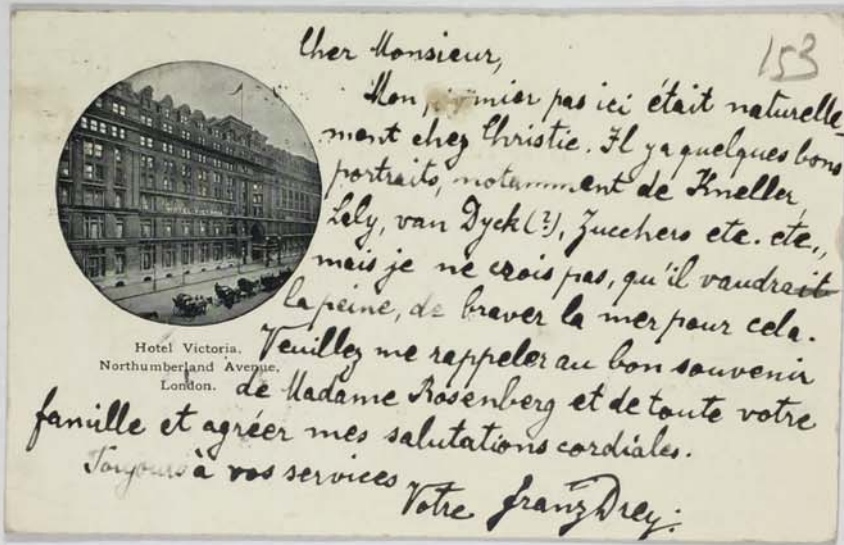 153
Cher Monsieur,
Mon premier pas ici était naturelle-
ment chez Christie. Il y a quelques bons
portraits, notamment de Kneller,
Lely, van Dyck (?), Zucchero etc. etc.,
mais je ne crois pas, qu'il vaudrait
la peine, de braver la mer pour cela.
Veuillez me rappeler au bon souvenir
de Madame Rosenberg et de toute votre
famille et agréer mes salutations cordiales.
Toujours à vos services
Votre Franz Drey.
HOTEL VICTORIA
Hotel Victoria,
Northumberland Avenue,
London.